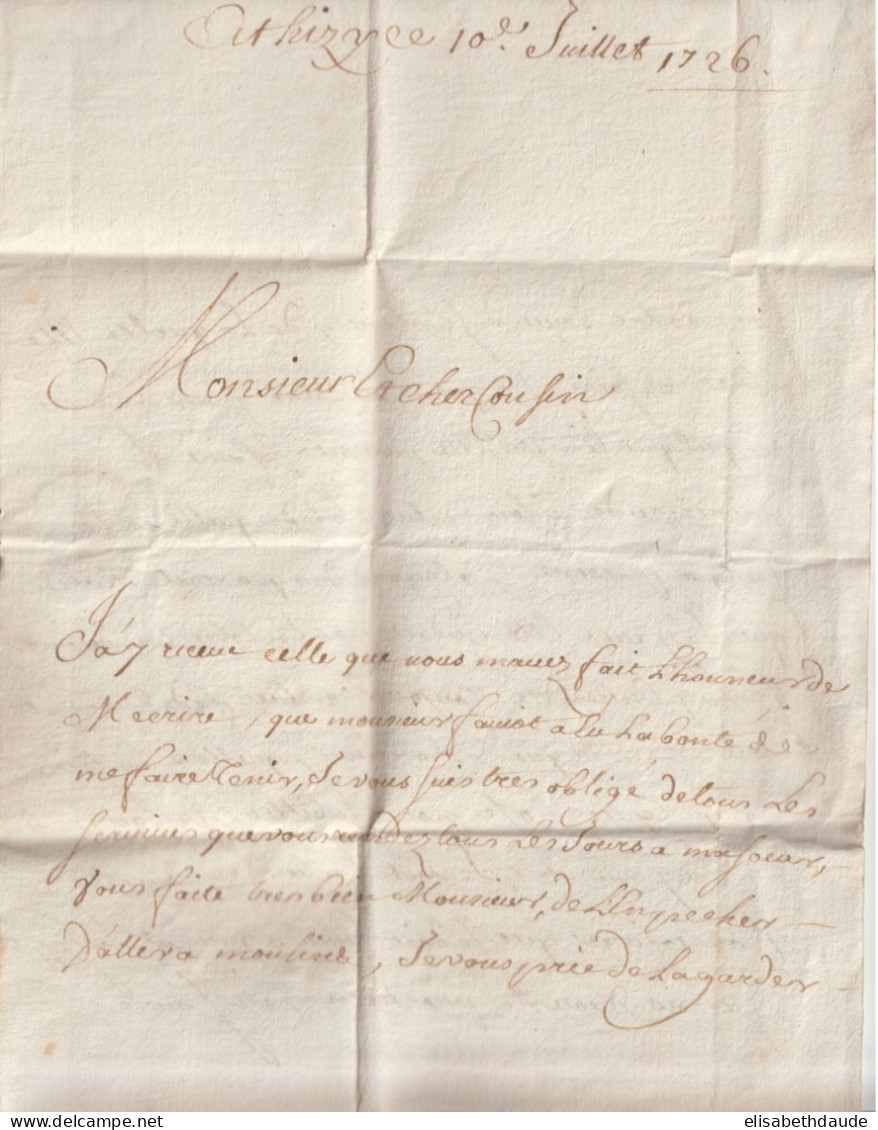 Athizy ce 10e. Juillet 1726.
Monsieur Et cher Cousin
J'áy receue celle que vous mavez fait L'honneur de
Mecrire, que monsieur faviot à Lü La bonté de
me faire Tenir, Je vous suis tres obligé de tous Les
services que vous rendez tous Les Jours a ma soeur,
Vous faite tres bien Monsieur, de L'Enpecher
D'aller a moulinde, Je vous prie de La garder
elisabethdaude